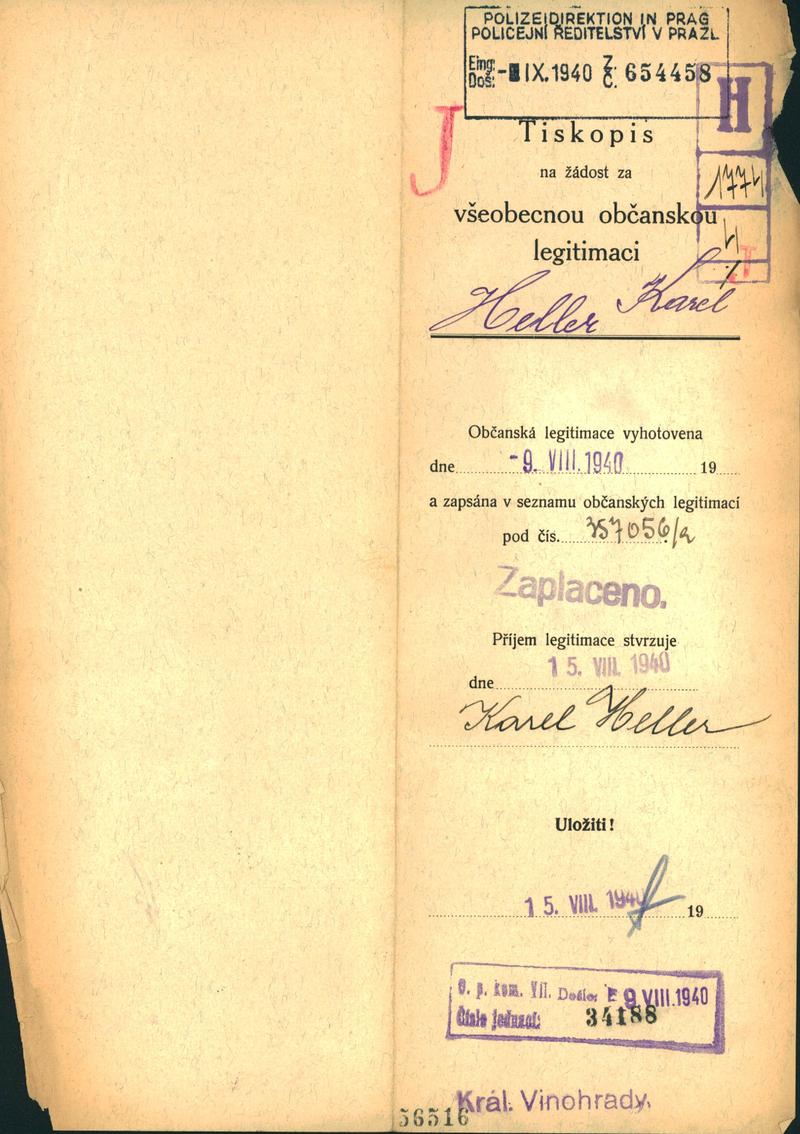 POLIZEIDIREKTION IN PRAG
POLICEJNÍ ŘEDITELSTVÍ V PRAZE
Eing: Z.
Doš: - IX. 1940 Č. 654458
H
J
Tiskopis
na žádost za
1774
všeobecnou občanskou
H
legitimaci
J
Heller Karel
Občanská legitimace vyhotovena
dne - 9. VIII. 1940 19
a zapsána v seznamu občanských legitimací
pod čís. 357056/a
Zaplaceno.
Příjem legitimace stvrzuje
15. VIII. 1940
dne
Karel Heller
Uložiti!
15. VIII. 1940 19
p. kom. VII. Došlo: 9 VIII. 1940
Číslo jednací: 34188
Král. Vinohrady.
56516